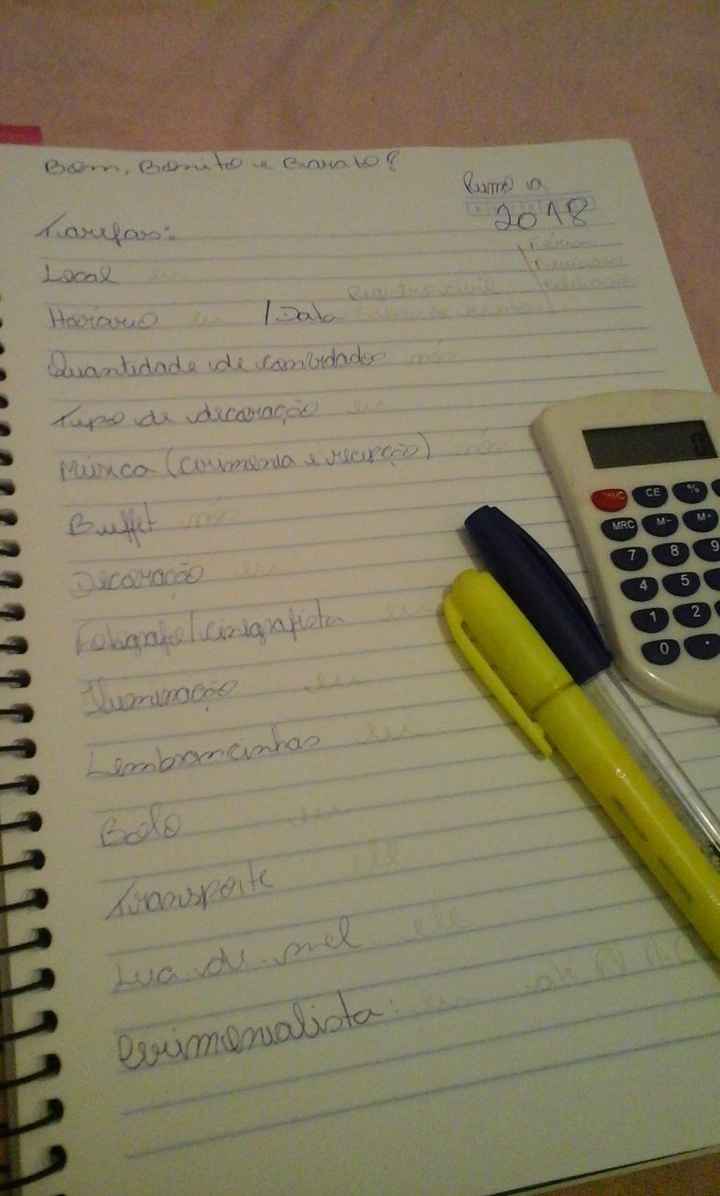 Bom, Bonito e Barato?
Rumo a
2018
Tarefas:
Local eu
Horário eu / Data
Quantidade de convidados nós
Tipo de decoração eu
Música (cerimonia e recepção) nós
Buffet nós
Decoração eu
Fotografo/cinegrafista eu
Iluminação eu
Lembrancinhas eu
Bolo eu
Transporte ele
Lua de mel ele
Cerimonialista: eu
0
CE
%
MRC
M-
M+
7
8
9
4
5
1
2
0
.